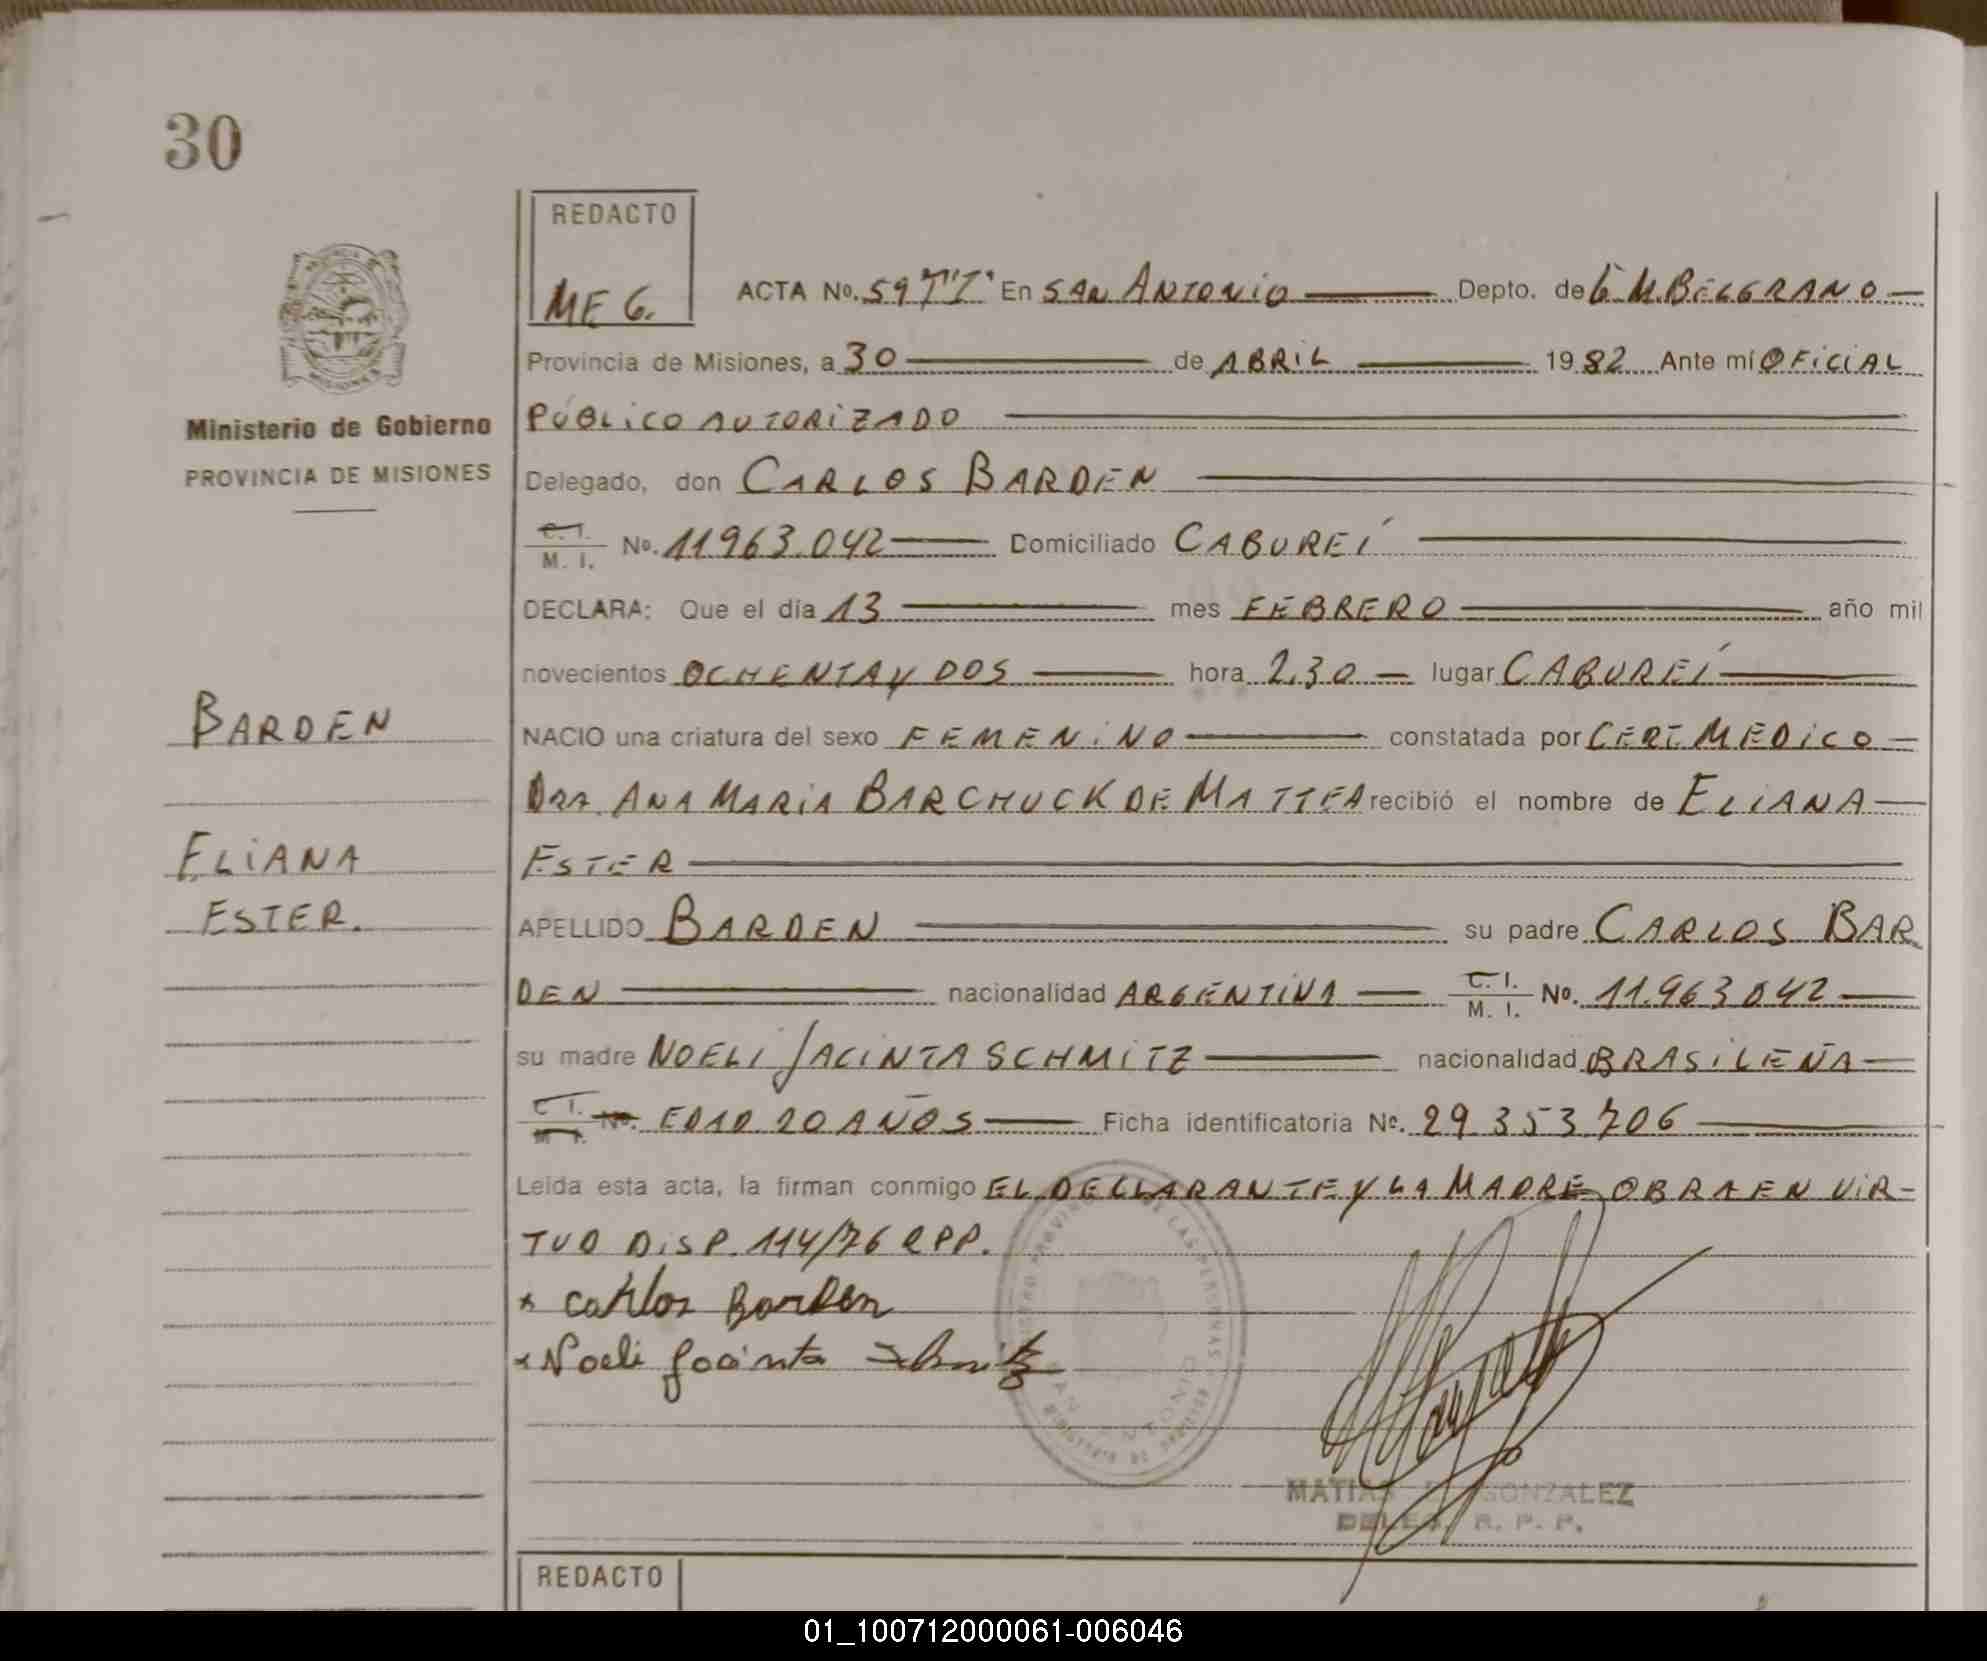 30
REDACTO
ME G.
ACTA No. 59 "T.I" En SAN ANTONIO Depto. de G M. BELGRANO
Provincia de Misiones, a 30 de ABRIL 1982 Ante mí OFICIAL
PÚBLICO AUTORIZADO
Delegado, don CARLOS BARDEN
C. I. / M. I. No. 11963.042 Domiciliado CABUREÍ
DECLARA: Que el día 13 mes FEBRERO año mil
novecientos OCHENTA Y DOS hora 2,30 lugar CABUREÍ
NACIO una criatura del sexo FEMENINO constatada por CERT. MEDICO
DRA. ANA MARIA BARCHUCK DE MATTEA recibió el nombre de ELIANA
ESTER
APELLIDO BARDEN su padre CARLOS BAR
DEN nacionalidad ARGENTINA C. I. / M. I. No. 11.963.042
su madre NOELI JACINTA SCHMITZ nacionalidad BRASILEÑA
C. I. / M. I. No. EDAD 20 AÑOS Ficha identificatoria No. 29.353.706
Leida esta acta, la firman conmigo EL DECLARANTE Y LA MADRE OBRA EN VIR-
TUD DISP. 114/76 RPP.
x Carlos Barden
x Noeli Jacinta Schmitz
SAN ANTONIO
MATIAS GONZALEZ
DELEG. R. P. P.
REDACTO
Ministerio de Gobierno
PROVINCIA DE MISIONES
BARDEN
ELIANA
ESTER.
01_100712000061-006046